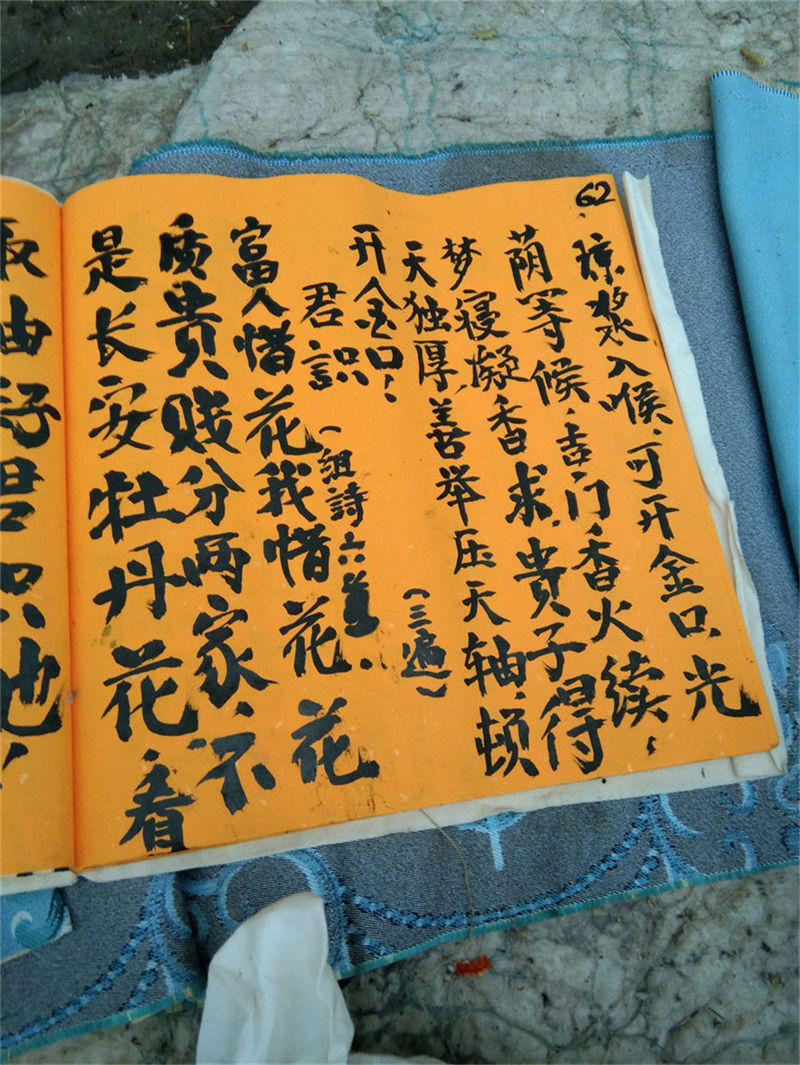 62
琼浆入喉,可开金口,光
荫等候,吉门香火续,
梦寝凝香求,贵子得
天独厚,善举压天轴,顿
开金口! (三遍)
君识 (组詩六首)
富人惜花我惜花,花
质贵贱分两家,不
是长安牡丹花,看